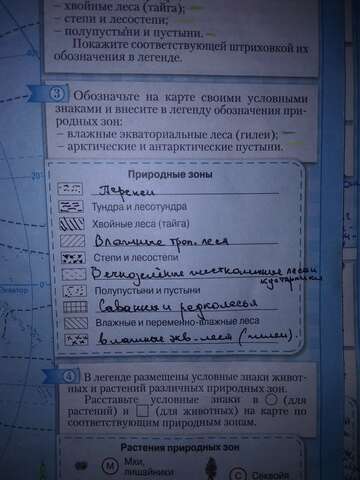 – хвойные леса (тайга);
– степи и лесостепи;
– полупустыни и пустыни.
Покажите соответствующей штриховкой их
обозначения в легенде.
3 Обозначьте на карте своими условными
знаками и внесите в легенду обозначения при-
родных зон:
– влажные экваториальные леса (гилеи);
– арктические и антарктические пустыни.
20°
Природные зоны
Тундра и лесотундра
Хвойные леса (тайга)
Влажные троп. леса
Степи и лесостепи
Вечнозелёные жестколистные леса и
кустарники
Полупустыни и пустыни
Саванны и редколесья
Влажные и переменно-влажные леса
влажные экв. лест (гилеи)
Экватор
0°
20°
4 В легенде размещены условные знаки живот-
ных и растений различных природных зон.
Расставьте условные знаки в (для
растений) и (для животных) на карте по
соответствующим природным зонам.
Растения природных зон
М Мхи,
лишайники
С Секвойя